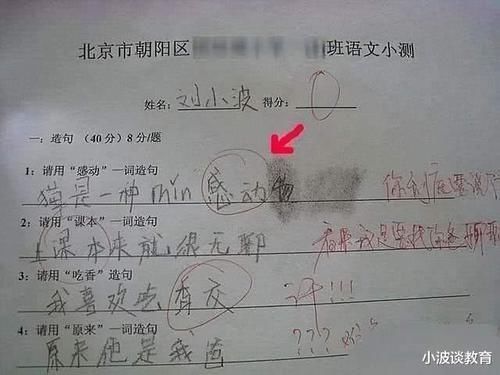 北京市朝阳区 班语文小测
姓名：刘小波 得分：0
一：造句（40分）8分/题
1：请用“感动”一词造句
猫是一种min感动物
2：请用“课本”一词造句
上课本来就很无聊
看来我是要找你爸聊聊
3：请用“吃香”造句
我喜欢吃香蕉
汗!!!
4：请用“原来”一词造句
原来他是我爸
???
小波谈教育